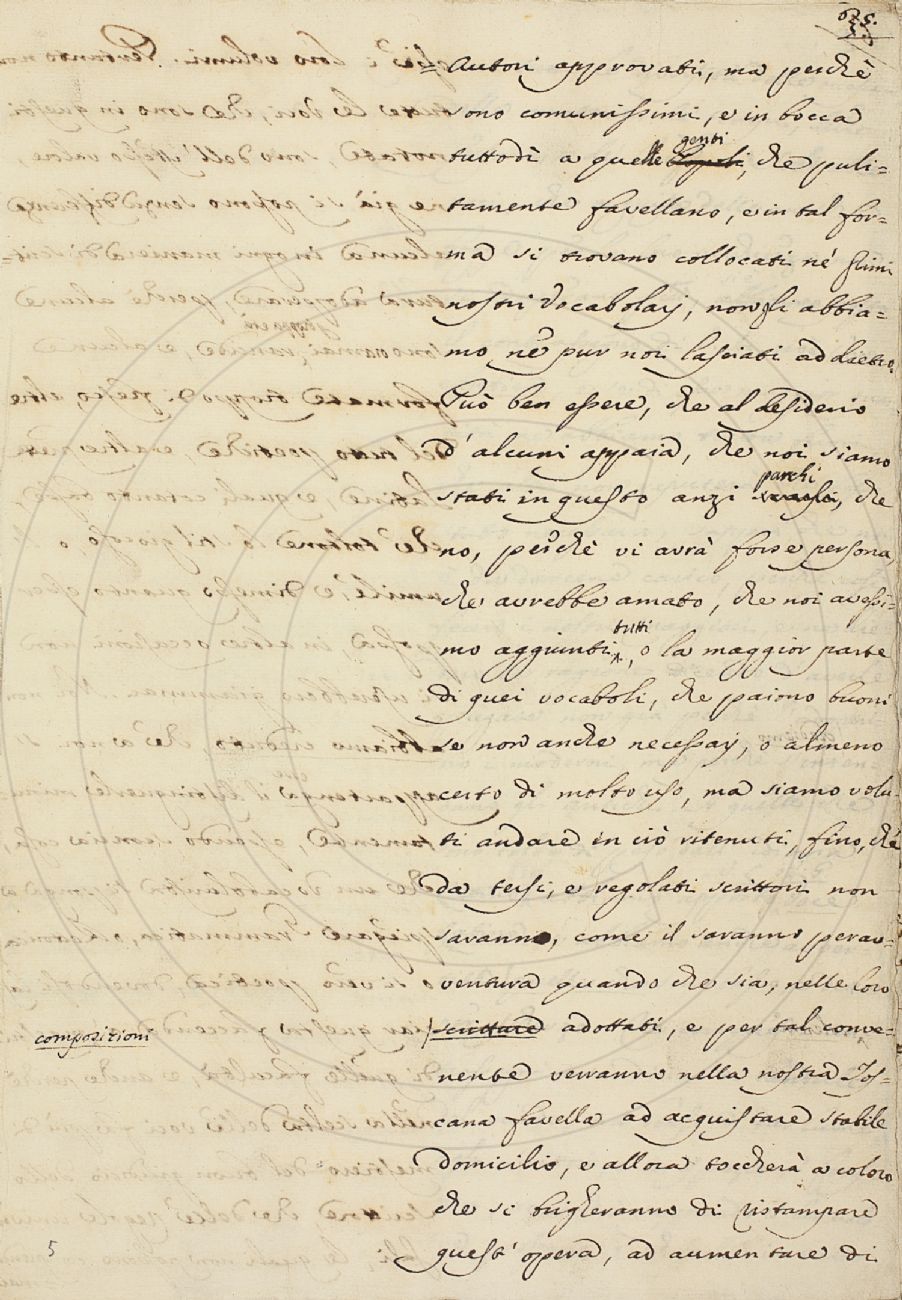 675.
5.
Autori approvati, ma perchè
sono comunissimi, e in bocca
genti
tuttodì a quelle Popoli, che puli=
tamente favellano, e in tal for=
ma si trovano collocati ne'
nostri Vocabolarj, non gli abbia=
mo nè pur noi lasciati addietro.
Può ben essere, che al desiderio
d'alcuni appaia, che noi siamo
parchi
stati in questo anzi scarsi, che
no, perchè vi avrà forse persona,
che avrebbe amato, che noi avessi=
tutti
mo aggiunti, o la maggior parte
di quei vocaboli, che paiono buoni
se non anche necessarj, o almeno
certo di molto uso, ma siamo volu-
ti andare in ciò ritenuti, fino, chè
da tersi, e regolati scrittori non
saranno, come il saranno perav-
ventura quando che sia, nelle loro
composizioni
scritture adottati, e per tal conve=
nente verranno nella nostra Tos=
cana favella ad acquistare stabile
domicilio, e allora toccherà a coloro
che si brigheranno di ristampare
quest'opera, ad aumentare di
5